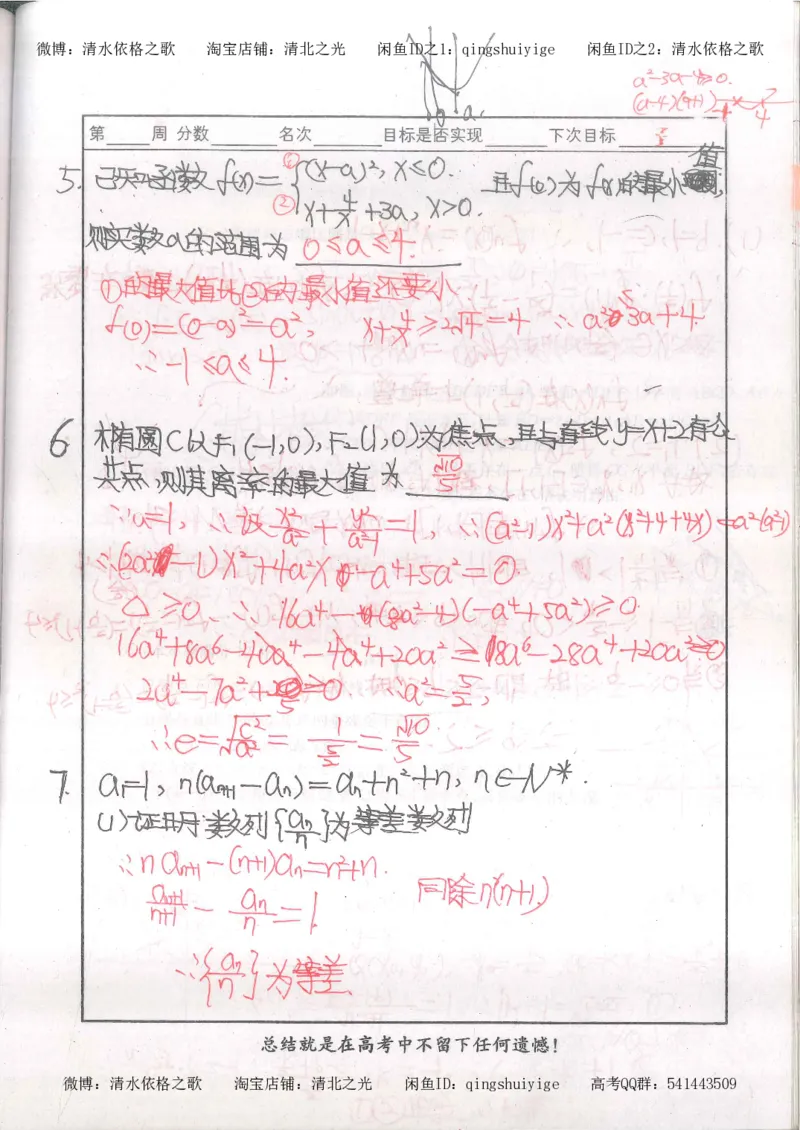 微博：清水依格之歌 淘宝店铺：清北之光 闲鱼ID之1：qingshuiyige 闲鱼ID之2：清水依格之歌
a²-3a-4≥0.
(a-4)(a+1)
-1 4
0 a
第____周 分数____名次____目标是否实现____下次目标____
5. 已知函数f(x)={①(x-a)², x≤0. ②x+4/x+3a, x>0. 且f(0)为f(x)的最小值,
则实数a的范围为 0≤a≤4.
①的最大值比②的最小值还要小
f(0)=(0-a)²=a², x+4/x≥2√4=4 ∴a²≤3a+4.
∴-1≤a≤4.
6 椭圆C以F₁(-1,0),F₂(1,0)为焦点,且与直线y=x+2有公
共点,则其离率的最大值为 √10/5
∵a=1, ∴设x²/a²+y²/a²-1=1, ∴(a²-1)x²+a²(x²+4+4x)=a²(a²-1)
△≥0. ∴16a⁴-4(8a²-4)(-a⁴+5a²)≥0
16a⁴+8a⁶-40a⁴-4a⁴+20a²≥18a⁶-28a⁴+20a²≥0
∴a²=5/2,
∴e=√c²/a²=1/(5/2)=√10/5
7. a₁=1, n(aₙ₊₁-aₙ)=aₙ+n²+n, n∈N*.
(1)证明:数列{aₙ/n}为等差数列
∵naₙ₊₁-(n+1)aₙ=n²+n.
同除n(n+1)
aₙ₊₁/n+1-aₙ/n=1.
∴{aₙ/n}为等差.
总结就是在高考中不留下任何遗憾!
微博：清水依格之歌 淘宝店铺：清北之光 闲鱼ID：qingshuiyige 高考QQ群：541443509